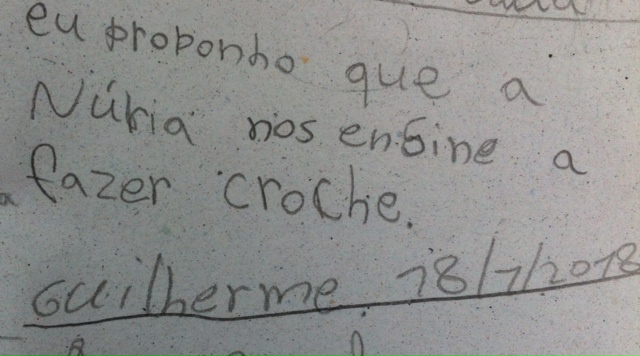 eu proponho que a
Núria nos ensine a
fazer croche.
Guilherme. 18/1/2018